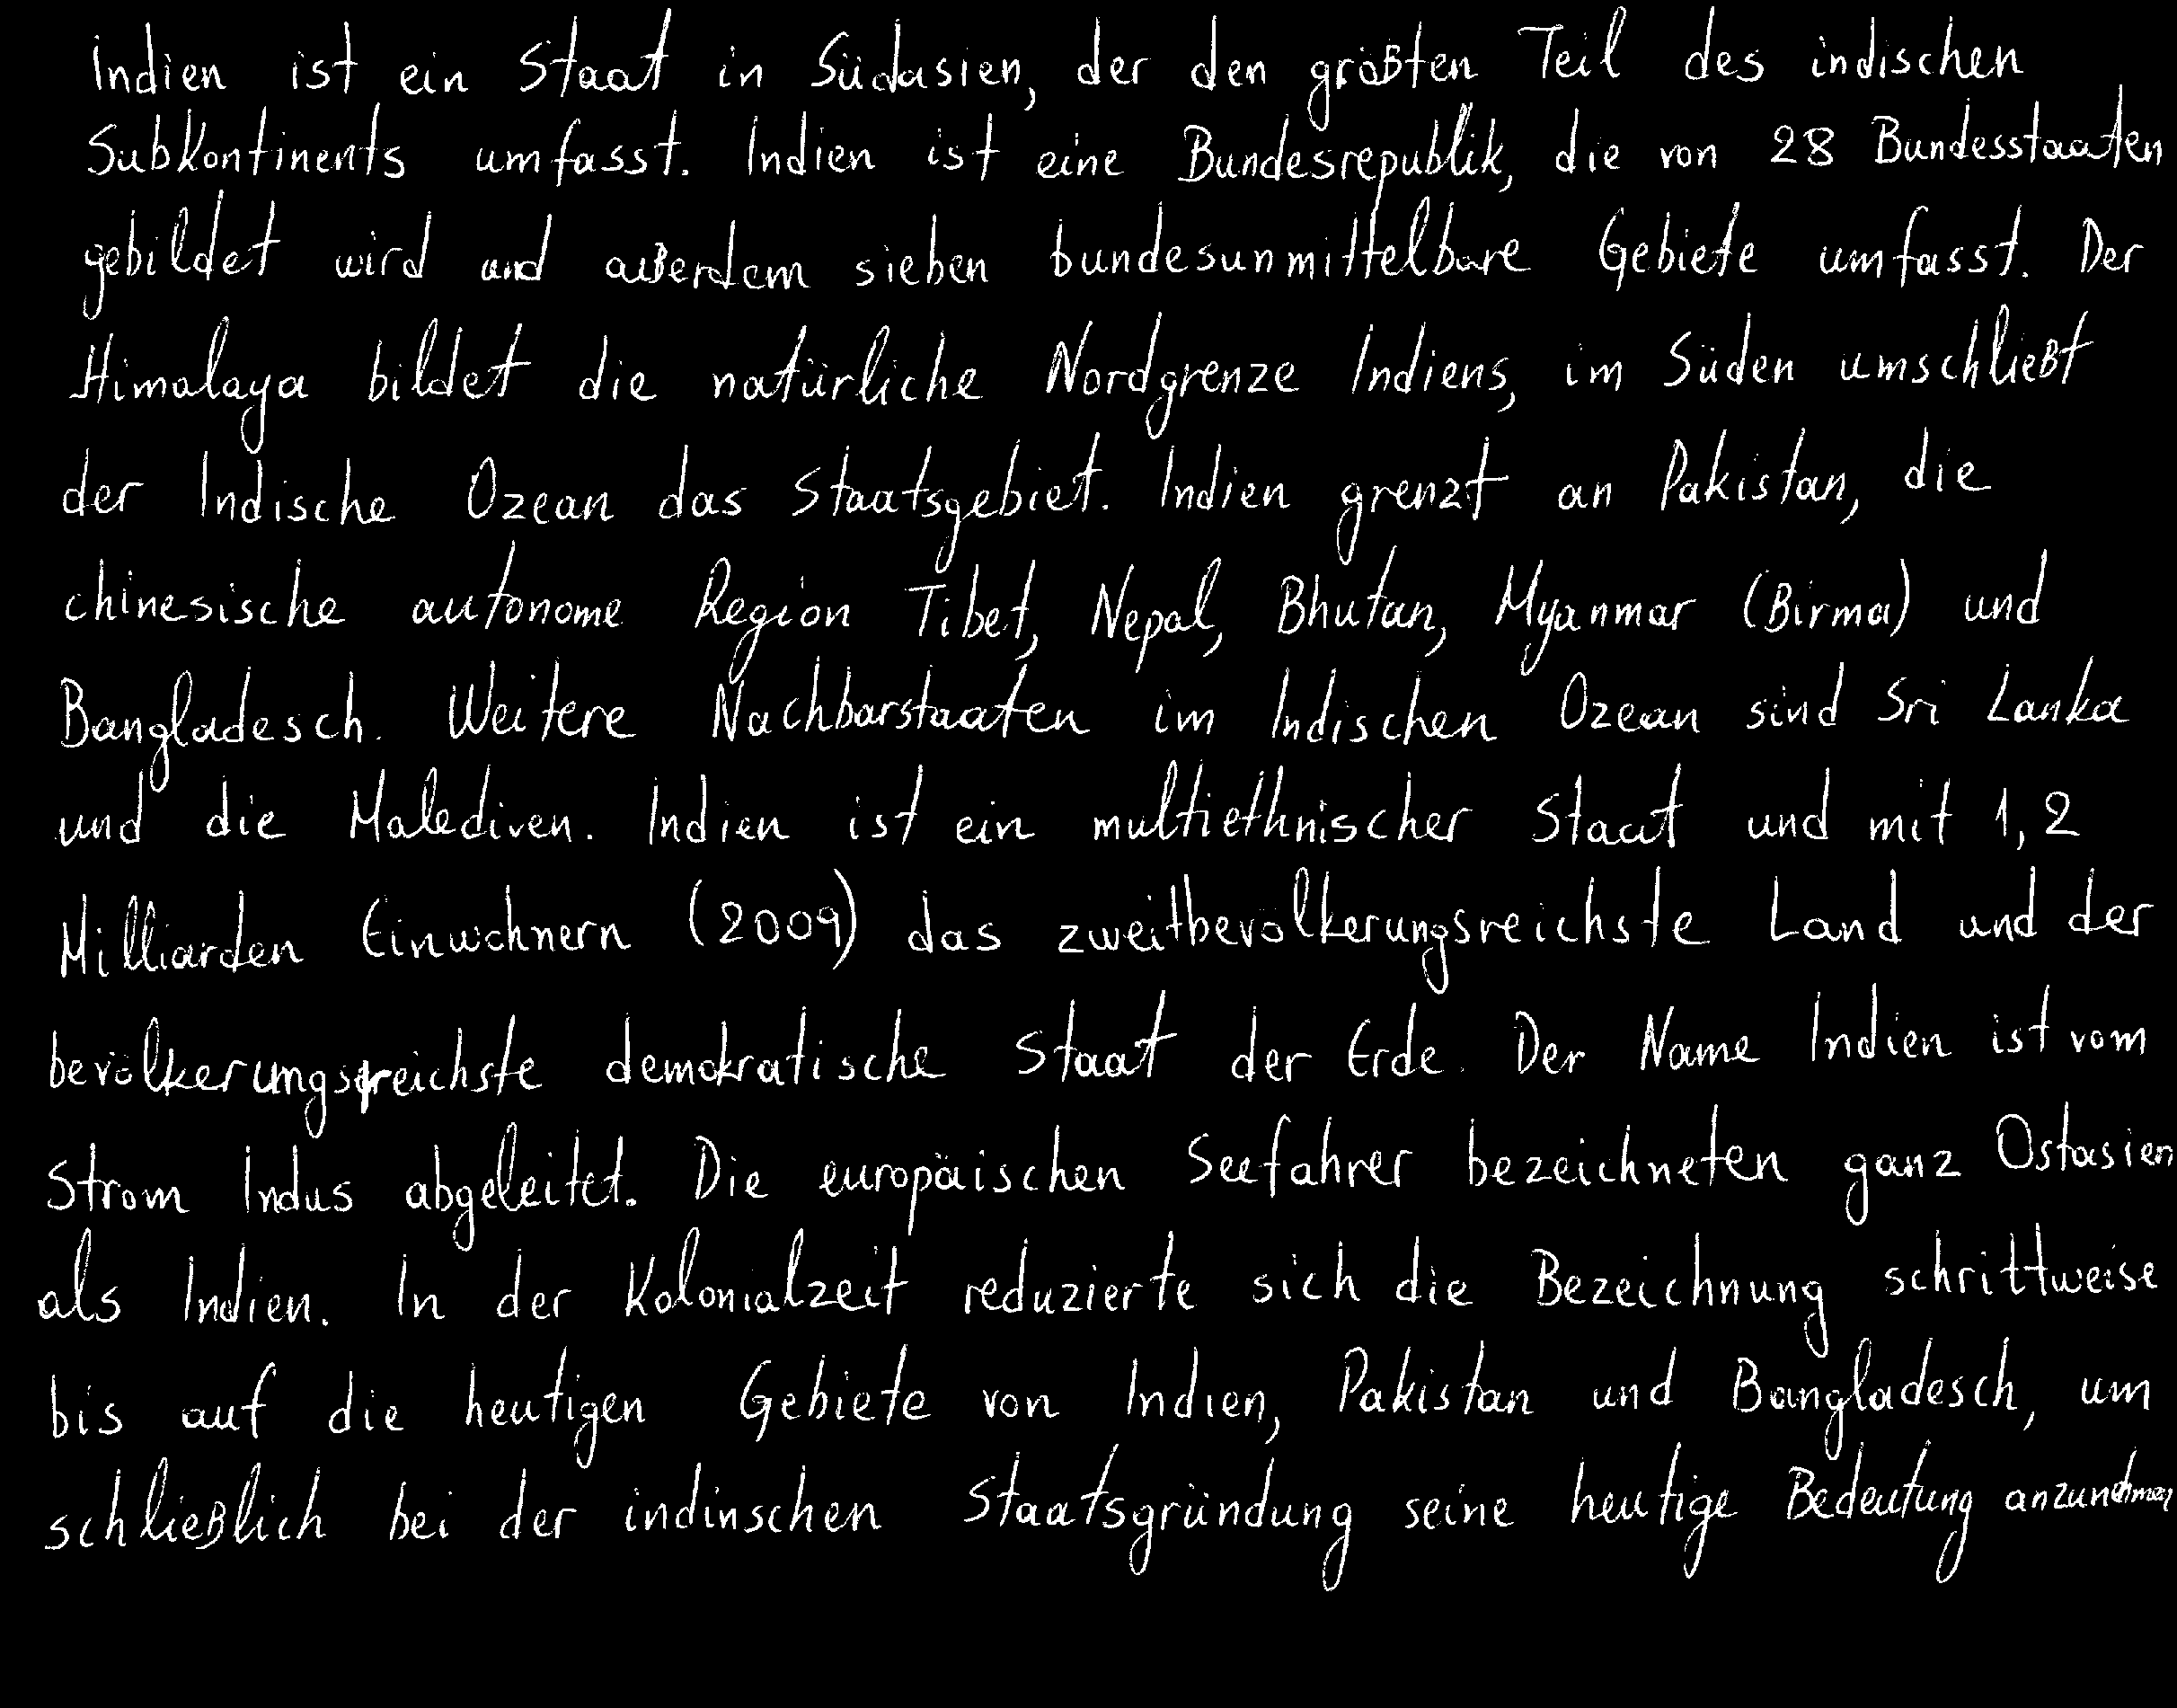 Indien ist ein Staat in Südasien, der den größten Teil des indischen
Subkontinents umfasst. Indien ist eine Bundesrepublik, die von 28 Bundesstaaten
gebildet wird und außerdem sieben bundesunmittelbare Gebiete umfasst. Der
Himalaya bildet die natürliche Nordgrenze Indiens, im Süden umschließt
der Indische Ozean das Staatsgebiet. Indien grenzt an Pakistan, die
chinesische autonome Region Tibet, Nepal, Bhutan, Myanmar (Birma) und
Bangladesch. Weitere Nachbarstaaten im Indischen Ozean sind Sri Lanka
und die Malediven. Indien ist ein multiethnischer Staat und mit 1,2
Milliarden Einwohnern (2009) das zweitbevölkerungsreichste Land und der
bevölkerungsreichste demokratische Staat der Erde. Der Name Indien ist vom
Strom Indus abgeleitet. Die europäischen Seefahrer bezeichneten ganz Ostasien
als Indien. In der Kolonialzeit reduzierte sich die Bezeichnung schrittweise
bis auf die heutigen Gebiete von Indien, Pakistan und Bangladesch, um
schließlich bei der indinschen Staatsgründung seine heutige Bedeutung anzunehmen